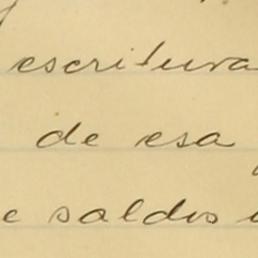 escritura
de esa
e saldos